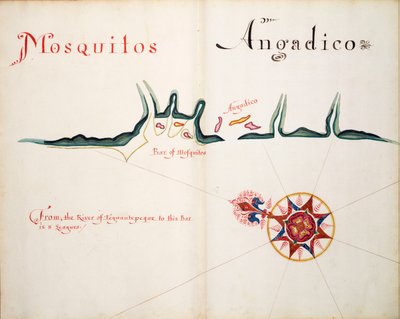 Mosquitos
Angadico
Angadico
Bar of Mosquitos
From, the River of Tequantepeque to this Bar
is 8 Leagues